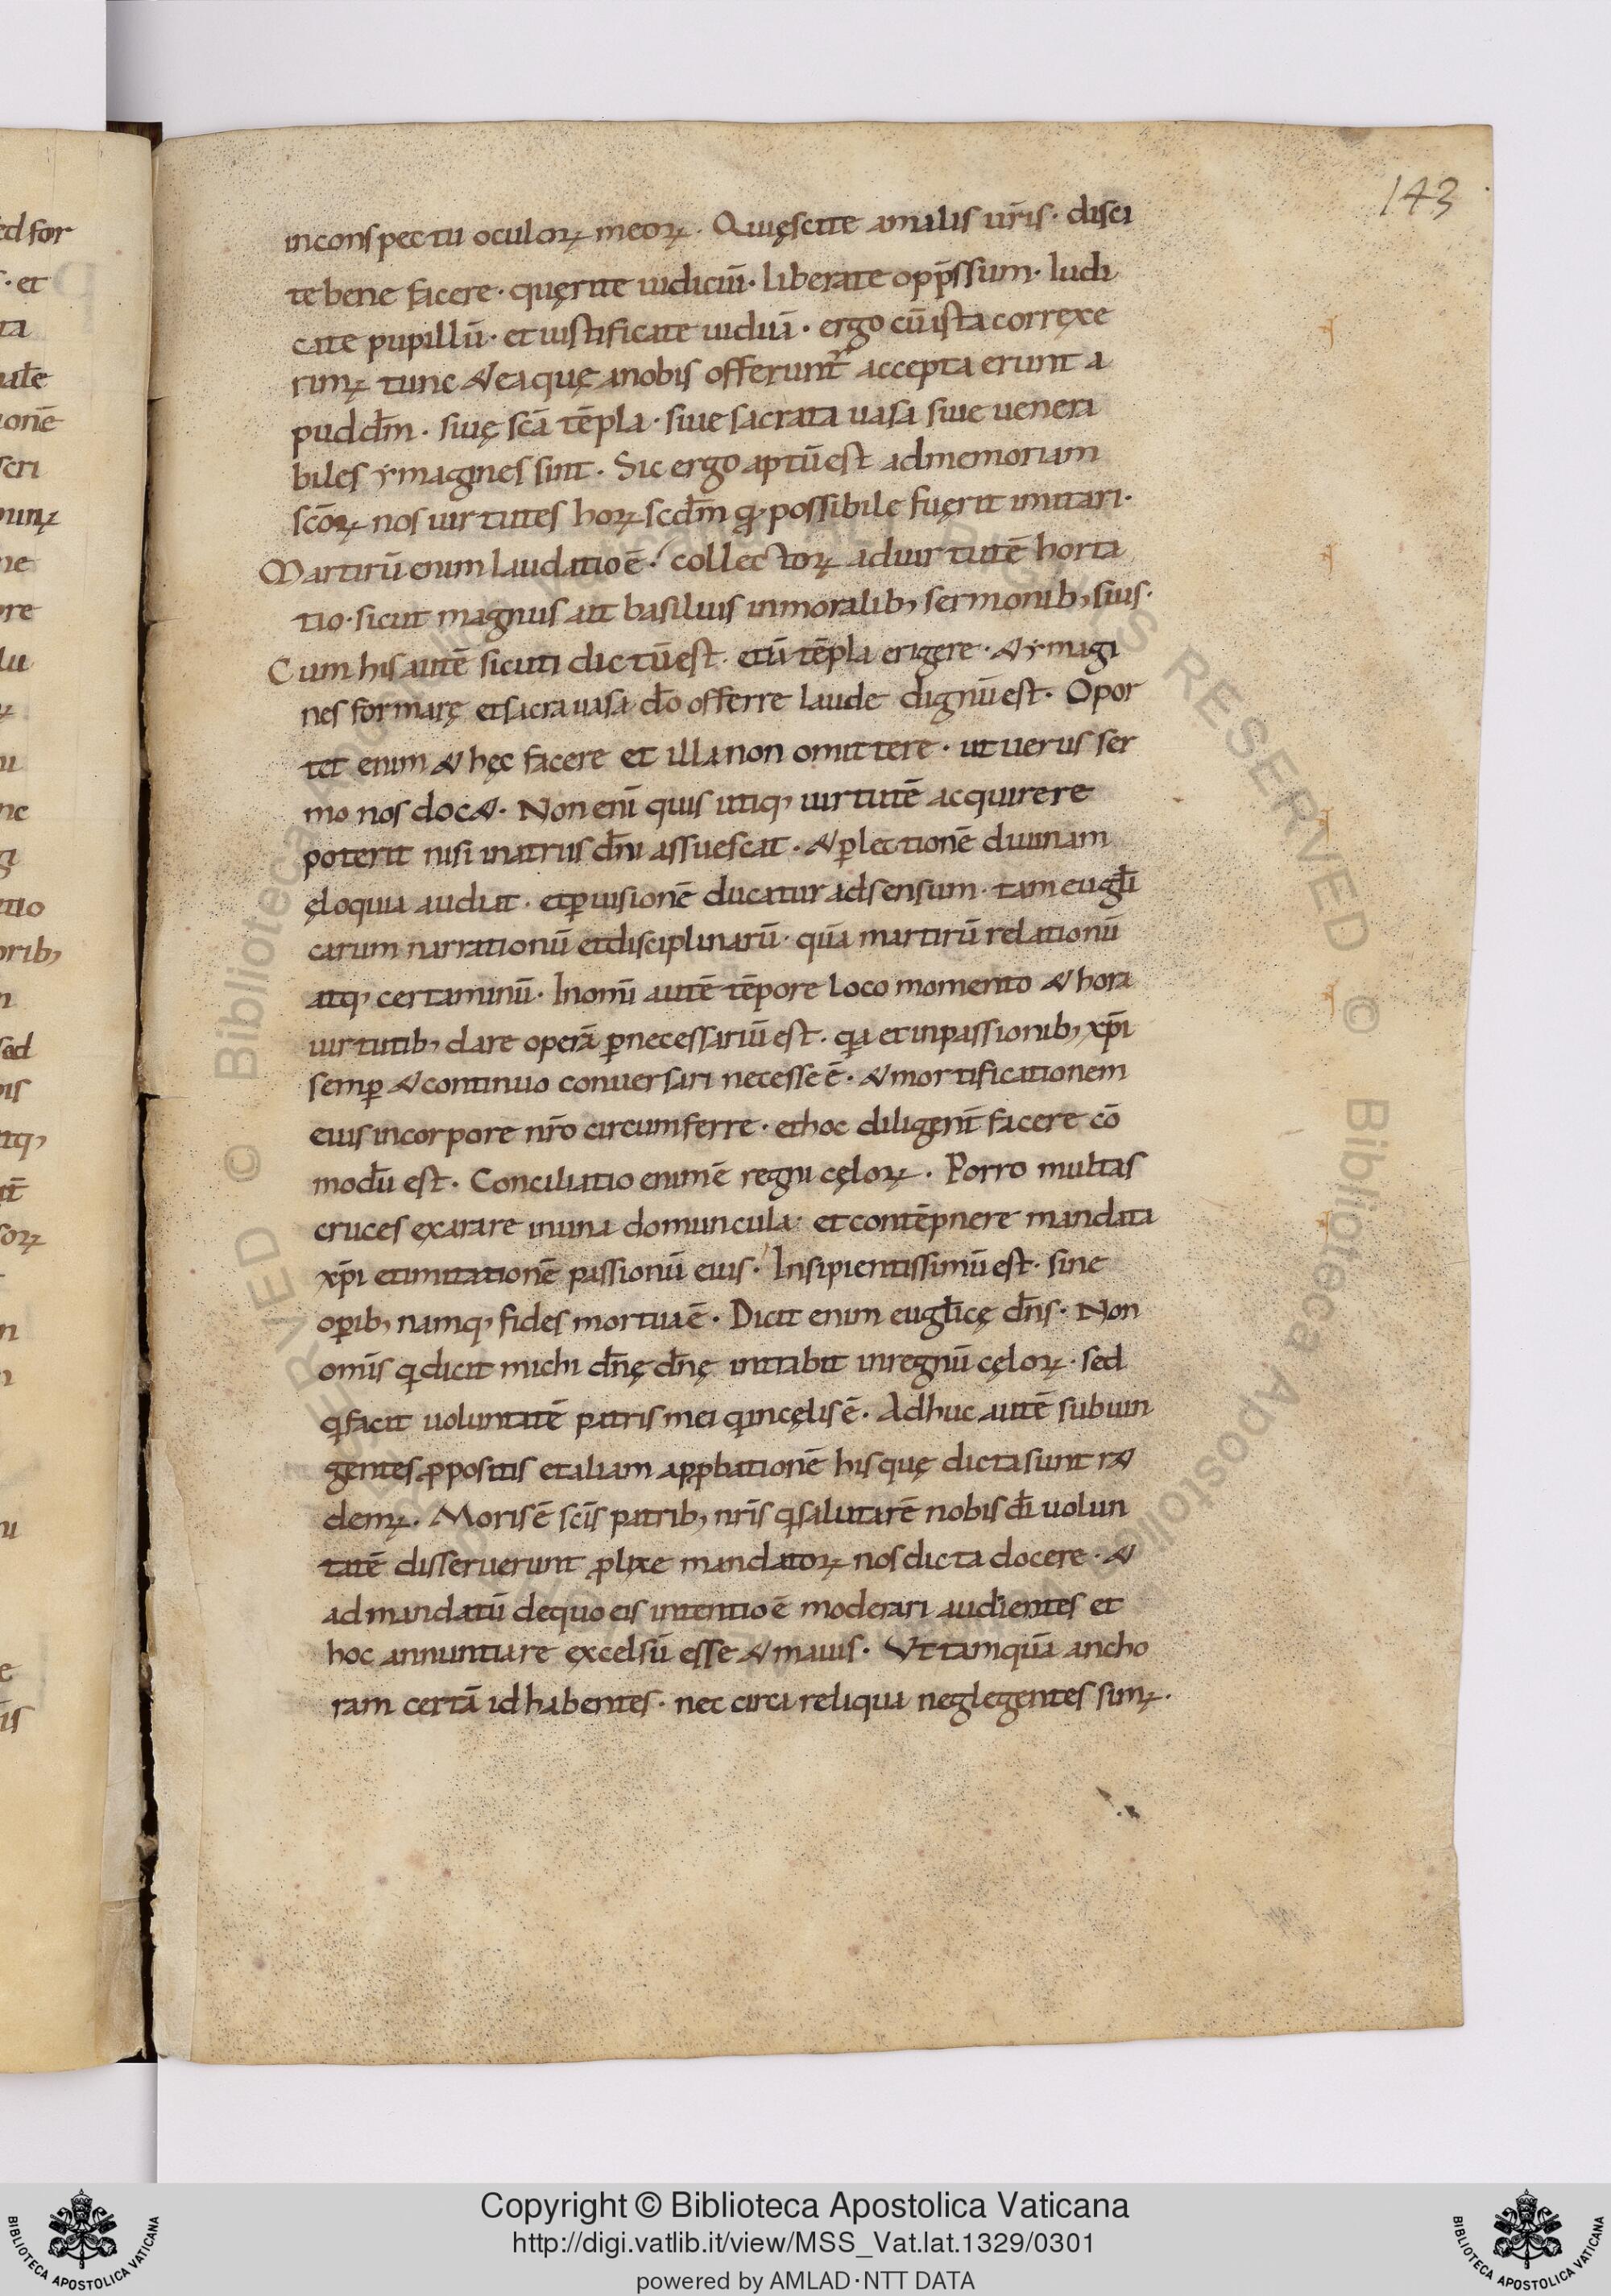 143
inconspectu oculoꝝ meoꝝ. Quięscite amalis ur̄is· disci
te bene facere· quęrite iudiciū· liberate opp̄ssum· Iudi
cate pupillū· et iustificate uiduā· ergo cū ista corręxe
rimꝰ tunc & ea quę anobis offerunt᷑ accepta erunt a
pud dm̄· siuę sc̄a tēpla· siue sacrata uasa siue uenera
biles ymagines sint· Sic ergo aptū est admemoriam
sc̄oꝝ nos uirtutes hoꝝ scdm̄ qđ possibile fuęrit imitari·
Martirū enim laudatio ē· collectoꝝ aduirtutē horta
tio· sicut magnus ait basilius inmoralibꝫ sermonibꝫ suis·
Cum his autē sicuti dictū est· etiā tēpla erigere· & ymagi
nes formarę et sacra uasa do̅ offerre laude dignū est· Opor
tet enim & hęc facere et illa non omittere· ut uerus ser
mo nos doc&· Non eni̅ quis utiqꝫ uirtutē acquirere
poterit nisi inatriis dn̄i assuescat· & ꝑ lectionē diuinam
ęloquia audiat· et ꝑ uisionē ducatur adsensum· tam eugl̄i
carum narrationū et disciplinarū· quā martirū relationū
atqꝫ certaminū· Inom̄i autē tēpore loco momento & hora
uirtutibꝫ dare operā ꝑnecessariū est· qa et inpassionibꝫ xp̄i
semꝑ & continuo conuersari necesse ē· & mortificationem
eius incorpore nr̄o circumferre· et hoc diligent̄ facere cō
modū est· Conciliatio enim ē regni cęloꝝ· Porro multas
cruces exarare inuna domuncula· et contēpnere mandata
xp̄i et imitationē passionū eius· Insipientissimū est· sine
oꝑibꝫ namqꝫ fides mortua ē· Dicit enim eugl̄icę dn̄s· Non
om̄is qi dicit michi dn̄ę dn̄ę intrabit inregnū cęloꝝ· sed
qi facit uoluntatē patris mei qi incęlis ē· Adhuc autē subiun
gentes ꝓpositis et aliam apꝓbationē his quę dicta sunt r&
demꝰ· Moris ē sc̄is patribꝫ nr̄is qi salutarē nobis di̅ uolun
tatē disseruerunt ꝓlixe mandatoꝝ nos dicta docere· &
ad mandatū de quo eis intentio ē moderari audientes et
hoc annuntiare excelsū esse & maius· Ut tamquā ancho
ram certā id habentes· nec circa reliqua neglegentes simꝰ·
Copyright © Biblioteca Apostolica Vaticana
http://digi.vatlib.it/view/MSS_Vat.lat.1329/0301
powered by AMLAD·NTT DATA
BIBLIOTECA APOSTOLICA VATICANA
BIBLIOTECA APOSTOLICA VATICANA